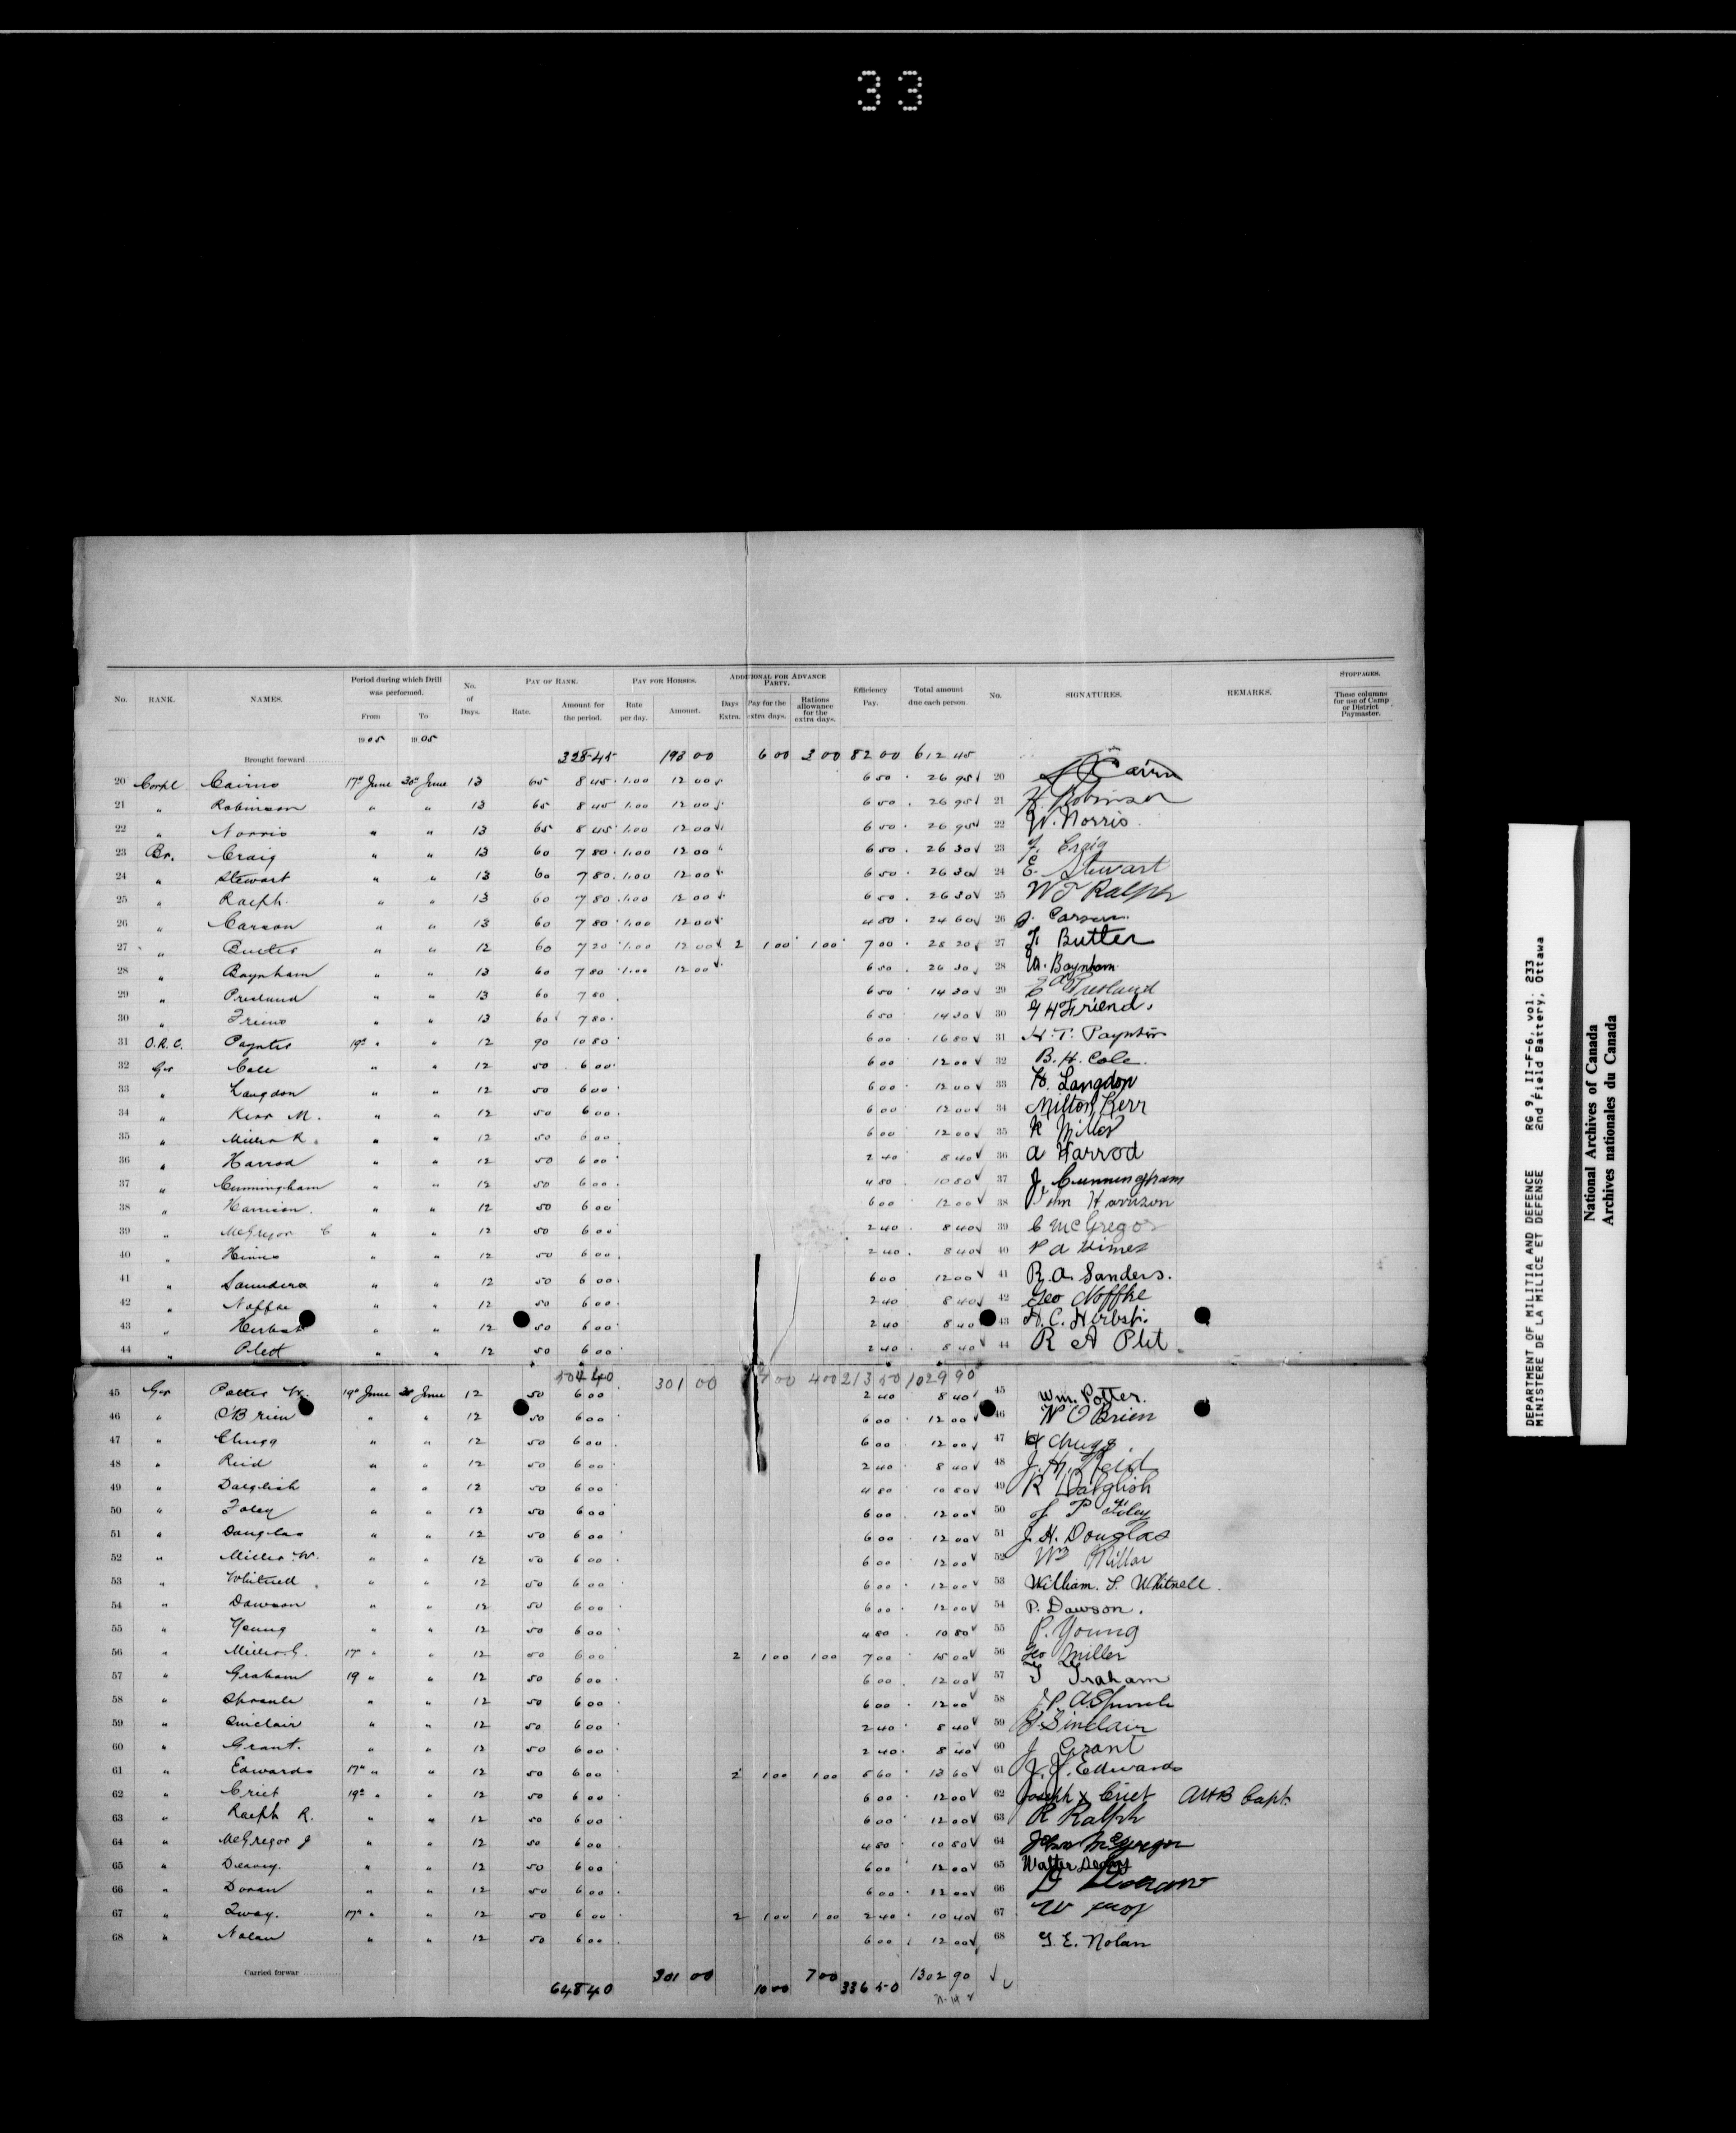 33
No. RANK. NAMES. Period during which Drill was performed. From To No. of Days. PAY OF RANK. Rate. Amount for the period. PAY FOR HORSES. Rate per day. Amount. ADDITIONAL FOR ADVANCE PARTY. Days Extra. Pay for the extra days. Rations allowance for the extra days. Efficiency Pay. Total amount due each person. No. SIGNATURES. REMARKS. STOPPAGES. These columns for use of Camp or District Paymaster.
1905 1905
Brought forward 328 45 193 00 6 00 3 00 82 00 612 45
20 Corpl Cairns 17th June 30th June 13 65 8 45 1.00 12 00 6 50 26 95 20
21 " Robinson " " 13 65 8 45 1.00 12 00 6 50 26 95 21 H. Robinson
22 " Norris " " 13 65 8 45 1.00 12 00 6 50 26 95 22 W. Norris
23 Br. Craig " " 13 60 7 80 1.00 12 00 6 50 26 30 23 F. Craig
24 " Stewart " " 13 60 7 80 1.00 12 00 6 50 26 30 24 E. Stewart
25 " Ralph " " 13 60 7 80 1.00 12 00 6 50 26 30 25 W J Ralph
26 " Carson " " 13 60 7 80 1.00 12 00 4 80 24 60 26 J. Carson
27 " Butler " " 12 60 7 20 1.00 12 00 2 1 00 1 00 7 00 28 20 27 F. Butler
28 " Baynham " " 13 60 7 80 1.00 12 00 6 50 26 30 28 W. Baynham
29 " Presland " " 13 60 7 80 6 50 14 30 29 Presland
30 " Friend " " 13 60 7 80 6 50 14 30 30 G H Friend.
31 O.R.C. Paynter 19th " " 12 90 10 80 6 00 16 80 31 H. T. Paynter
32 Gr Cole " " 12 50 6 00 6 00 12 00 32 B. H. Cole.
33 " Langdon " " 12 50 6 00 6 00 12 00 33 H. Langdon
34 " Kerr M. " " 12 50 6 00 6 00 12 00 34 Milton Kerr
35 " Miller R. " " 12 50 6 00 6 00 12 00 35 R Miller
36 " Harrod " " 12 50 6 00 2 40 8 40 36 A Harrod
37 " Cunningham " " 12 50 6 00 4 80 10 80 37 J. Cunningham
38 " Harrison. " " 12 50 6 00 6 00 12 00 38 Tom Harrison
39 " McGregor C " " 12 50 6 00 2 40 8 40 39 C McGregor
40 " Himes " " 12 50 6 00 2 40 8 40 40 P A Himes
41 " Saunders " " 12 50 6 00 6 00 12 00 41 R. A. Sanders.
42 " Noffke " " 12 50 6 00 2 40 8 40 42 Geo Noffke
43 " Herbst " " 12 50 6 00 2 40 8 40 43 H. C. Herbst.
44 " Plet " " 12 50 6 00 2 40 8 40 44 R A Plet
504 40 301 00 7 00 4 00 213 50 1029 90
45 Gr Potter W. 19th June 30 June 12 50 6 00 2 40 8 40 45 Wm. Potter.
46 " O'Brien " " 12 50 6 00 6 00 12 00 46 W O'Brien
47 " Chugg " " 12 50 6 00 6 00 12 00 47 Chugg
48 " Reid " " 12 50 6 00 2 40 8 40 48 J. H. Reid
49 " Dalglish " " 12 50 6 00 4 80 10 80 49 R Dalglish
50 " Foley " " 12 50 6 00 6 00 12 00 50 J P Foley
51 " Douglas " " 12 50 6 00 6 00 12 00 51 J. H. Douglas
52 " Miller W. " " 12 50 6 00 6 00 12 00 52 Wm Millar
53 " Whitnell " " 12 50 6 00 6 00 12 00 53 William. S. Whitnell.
54 " Dawson " " 12 50 6 00 6 00 12 00 54 P. Dawson.
55 " Young " " 12 50 6 00 4 80 10 80 55 P. Young
56 " Miller G. 17th " " 12 50 6 00 2 1 00 1 00 7 00 15 00 56 Geo Miller
57 " Graham 19 " " 12 50 6 00 6 00 12 00 57 Graham
58 " " " 12 50 6 00 6 00 12 00 58
59 " Sinclair " " 12 50 6 00 2 40 8 40 59 J. Sinclair
60 " Grant. " " 12 50 6 00 2 40 8 40 60 J Grant
61 " Edwards 17th " " 12 50 6 00 2 1 00 1 00 5 60 13 60 61 J. J. Edwards
62 " Criet 19th " " 12 50 6 00 6 00 12 00 62 Joseph x Criet AHB Capt.
63 " Ralph R. " " 12 50 6 00 6 00 12 00 63 R Ralph
64 " McGregor J " " 12 50 6 00 4 80 10 80 64 John McGregor
65 " " " 12 50 6 00 6 00 12 00 65 Walter
66 " Doran " " 12 50 6 00 6 00 12 00 66 D Doran
67 " 17th " " 12 50 6 00 2 1 00 1 00 2 40 10 40 67 W
68 " Nolan " " 12 50 6 00 6 00 12 00 68 T. E. Nolan
Carried forwar 648 40 301 00 10 00 7 00 336 50 1302 90
DEPARTMENT OF MILITIA AND DEFENCE RG 9, II-F-6, vol. 233
MINISTERE DE LA MILICE ET DEFENSE 2nd Field Battery, Ottawa
National Archives of Canada
Archives nationales du Canada